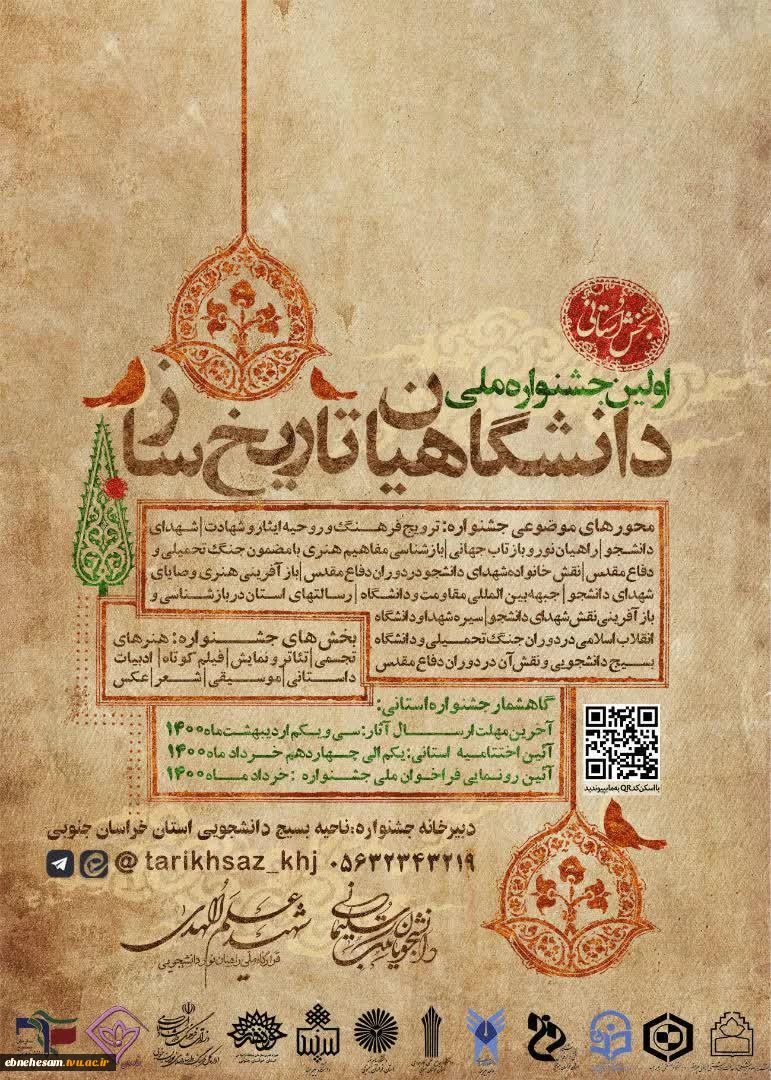 بخش استانی
اولین جشنواره ملی
دانشگاهیان تاریخ ساز
محورهای موضوعی جشنواره: ترویج فرهنگ و روحیه ایثار و شهادت | شهدای
دانشجو | راهیان نور و بازتاب جهانی | بازشناسی مفاهیم هنری با مضمون جنگ تحمیلی و
دفاع مقدس | نقش خانواده شهدای دانشجو در دوران دفاع مقدس | بازآفرینی هنری وصایای
شهدای دانشجو | جبهه بین المللی مقاومت و دانشگاه | رسالتهای استان در بازشناسی و
بازآفرینی نقش شهدای دانشجو | سیره شهدا و دانشگاه
انقلاب اسلامی در دوران جنگ تحمیلی و دانشگاه
بسیج دانشجویی و نقش آن در دوران دفاع مقدس
بخش های جشنواره: هنرهای
تجسمی | تئاتر و نمایش | فیلم کوتاه | ادبیات
داستانی | موسیقی | شعر | عکس
گاهشمار جشنواره استانی:
آخرین مهلت ارسال آثار: سی و یکم اردیبهشت ماه ۱۴۰۰
آئین اختتامیه استانی: یکم الی چهاردهم خرداد ماه ۱۴۰۰
آئین رونمایی فراخوان ملی جشنواره: خرداد ماه ۱۴۰۰
با اسکن کد QR به ما بپیوندید
دبیرخانه جشنواره: ناحیه بسیج دانشجویی استان خراسان جنوبی
@ tarikhsaz_khj ۰۵۶۳۲۳۴۳۲۱۹
دانشجویان مکتب سلیمانی
شهید علم الهدی
قرارگاه ملی راهیان نور دانشجویی
ebnehesam.tvu.ac.ir